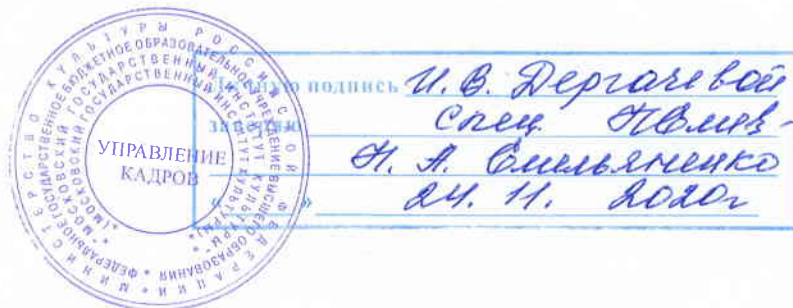 МИНИСТЕРСТВО КУЛЬТУРЫ РОССИЙСКОЙ ФЕДЕРАЦИИ
ФЕДЕРАЛЬНОЕ ГОСУДАРСТВЕННОЕ БЮДЖЕТНОЕ ОБРАЗОВАТЕЛЬНОЕ УЧРЕЖДЕНИЕ ВЫСШЕГО ОБРАЗОВАНИЯ
"МОСКОВСКИЙ ГОСУДАРСТВЕННЫЙ ИНСТИТУТ КУЛЬТУРЫ"
(МОСКОВСКИЙ ГОСУДАРСТВЕННЫЙ ИНСТИТУТ КУЛЬТУРЫ)
УПРАВЛЕНИЕ
КАДРОВ
подпись И. В. Дергачевой
заверяю Спец.
Н. А. Емельяненко
« » 24. 11. 2020г